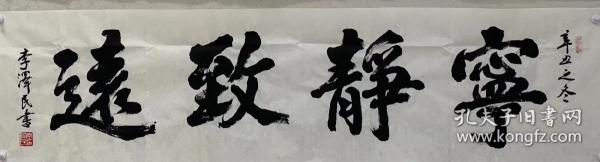 辛丑之冬
寧靜致遠
李澤民書
孔夫子旧书网
www.kongfz.com